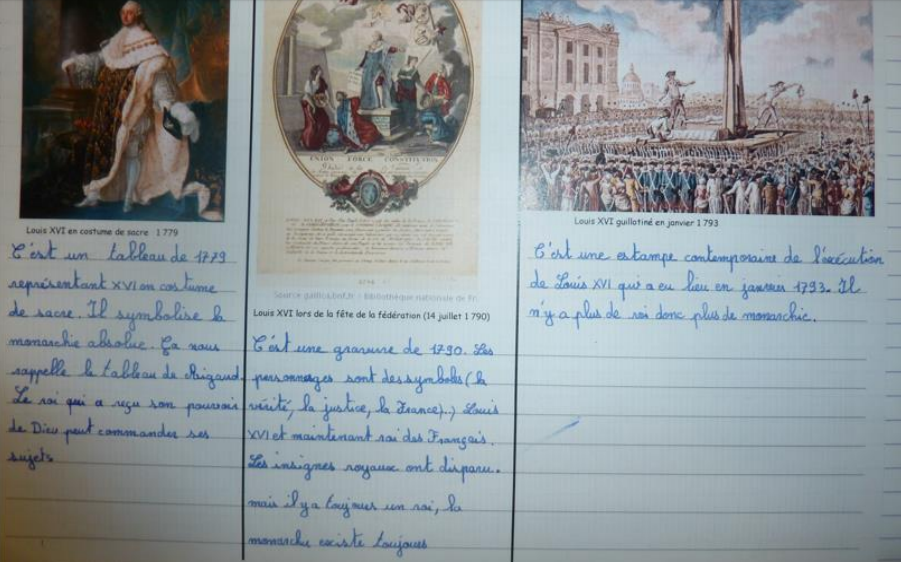 Louis XVI en costume de sacre 1779
C'est un tableau de 1779
représentant XVI en costume
de sacre. Il symbolise la
monarchie absolue. Ça nous
rappelle le tableau de Rigaud.
Le roi qui a reçu son pouvoir
de Dieu peut commander ses
sujets
UNION FORCE CONSTITUTION
Source gallica.bnf.fr : Bibliothèque nationale de Fr
Louis XVI lors de la fête de la fédération (14 juillet 1790)
C'est une gravure de 1790. Les
personnages sont des symboles (la
vérité, la justice, la France).) Louis
XVI et maintenant roi des Français.
Les insignes royaux ont disparu.
mais il y a toujours un roi, la
monarchie existe toujours
Louis XVI guillotiné en janvier 1793
C'est une estampe contemporaine de l'exécution
de Louis XVI qui a eu lieu en janvier 1793. Il
n'y a plus de roi donc plus de monarchie.